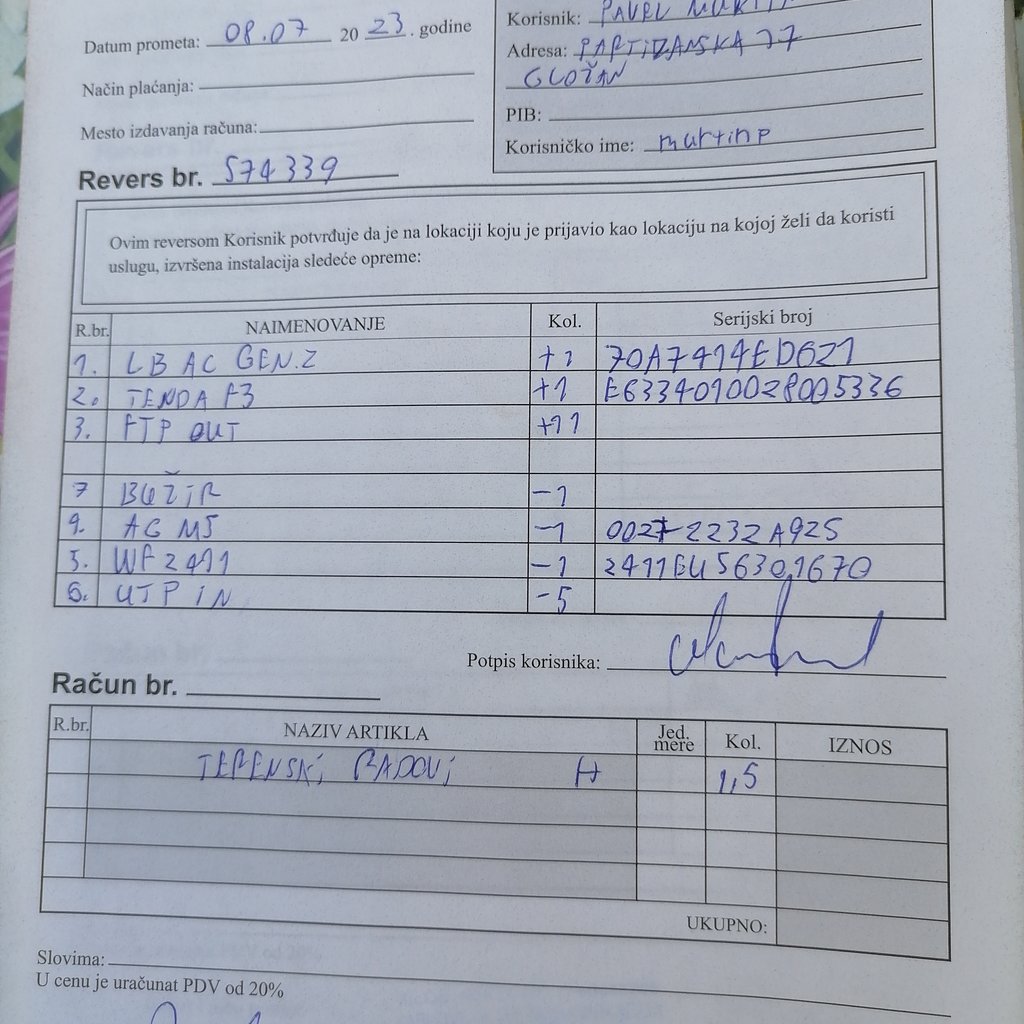 Datum prometa: 08.07 2023. godine
Način plaćanja:
Mesto izdavanja računa:
Revers br. 574339
Korisnik: PAVEL
Adresa: PARTIZANSKA 77
GLOŽAN
PIB:
Korisničko ime: martinp
Ovim reversom Korisnik potvrđuje da je na lokaciji koju je prijavio kao lokaciju na kojoj želi da koristi
uslugu, izvršena instalacija sledeće opreme:
R.br. NAIMENOVANJE Kol. Serijski broj
1. LB AC GEN.2 +1 70A7414ED621
2. TENDA F3 +1 E6334010028005336
3. FTP OUT +11
7 BUŽIR -1
4. AG M5 -1 00272232A925
5. WF2411 -1 2411EU56301670
6. UTP IN -5
Potpis korisnika:
Račun br.
R.br. NAZIV ARTIKLA Jed. mere Kol. IZNOS
TERENSKI RADOVI H 1,5
UKUPNO:
Slovima:
U cenu je uračunat PDV od 20%